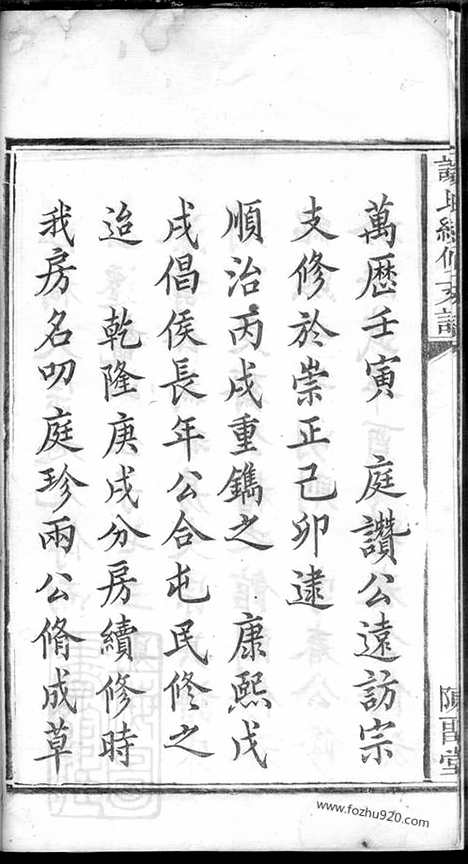 修支譜
堂
萬歷壬寅　庭讚公遠訪宗
支修於崇正己卯逮
順治丙戌重鐫之　康熙戊
戌倡侯長年公合屯民修之
迨　乾隆庚戌分房續修時
我房名叨庭珍兩公脩成草
www.fozhu920.com